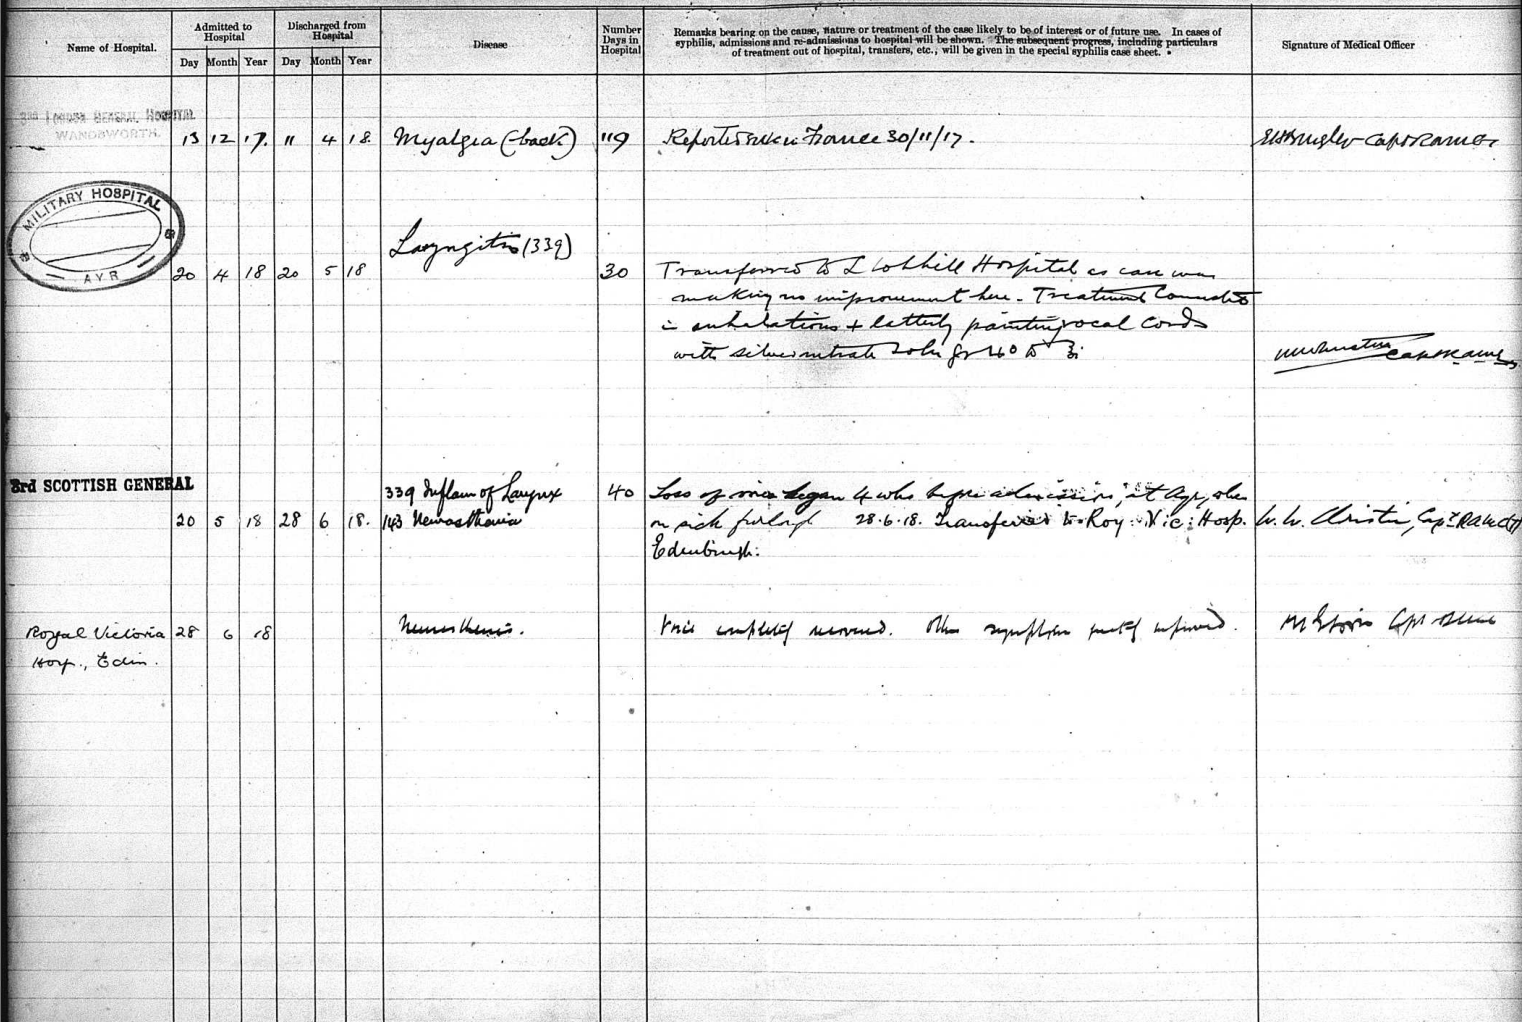 Name of Hospital.
Admitted to Hospital
Day Month Year
Discharged from Hospital
Day Month Year
Disease
Number Days in Hospital
Remarks bearing on the cause, nature or treatment of the case likely to be of interest or of future use. In cases of
syphilis, admissions and re-admissions to hospital will be shown. The subsequent progress, including particulars
of treatment out of hospital, transfers, etc., will be given in the special syphilis case sheet.
Signature of Medical Officer
3RD LONDON GENERAL HOSPITAL
WANDSWORTH.
13 12 17. 11 4 18. Myalgia (back) 119 Reported sick in France 30/11/17. Capt RAMC
MILITARY HOSPITAL
AYR
Laryngitis (339)
20 4 18 20 5 18 30 Transferred to Stobhill Hospital as case was
making no improvement here - Treatment Consisted
in inhalations + latterly painting vocal cords
with silver nitrate soln gr 40 to ʒi Capt RAMC
3rd SCOTTISH GENERAL
339 Inflam of Larynx 40 Loss of voice began 4 wks before admission, at Ayr, when
20 5 18 28 6 18. 143 Neurasthenia on sick furlough 28.6.18. Transferred to Roy. Vic. Hosp. W. W. Christie, Capt RAMC (T)
Edinburgh.
Royal Victoria 28 6 18 Neurasthenia. Voice completely recovered. Other symptoms greatly improved. Capt RAMC
Hosp., Edin.